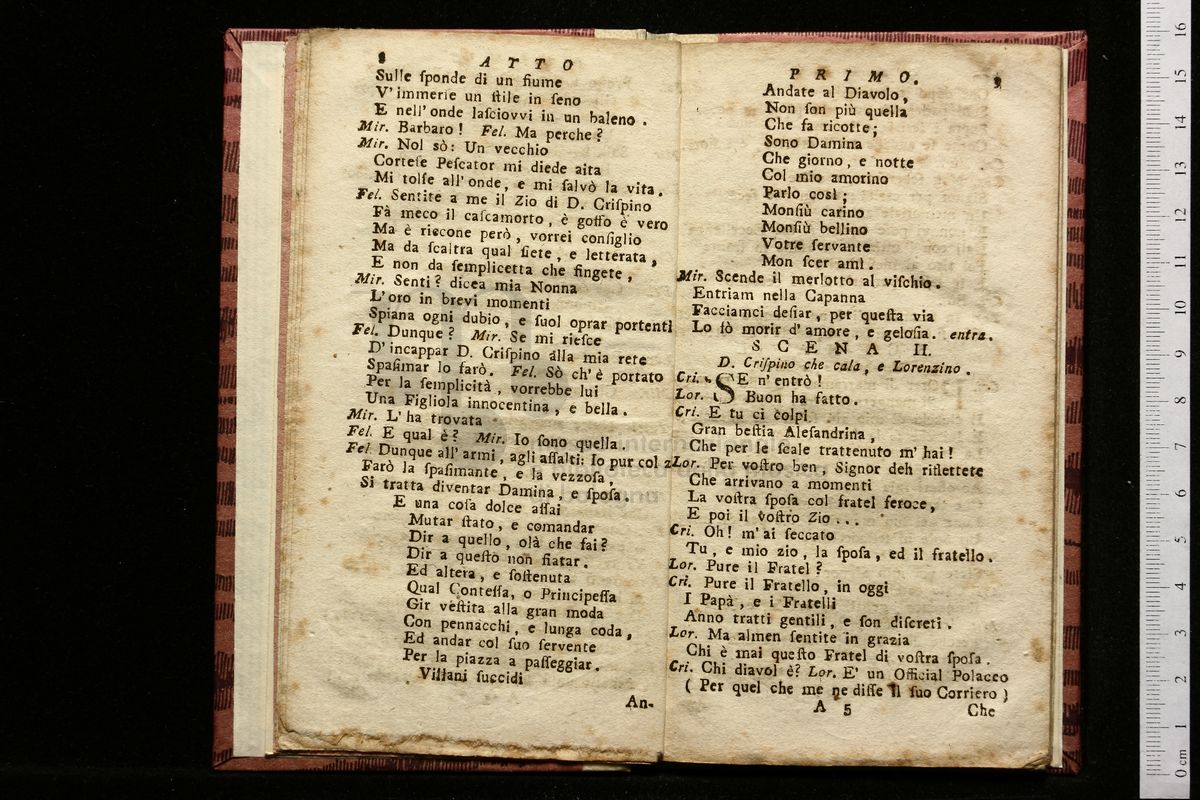 8 ATTO
Sulle ſponde di un fiume
V'immerſe un ſtile in ſeno
E nell'onde laſciovvi in un baleno.
Mir. Barbaro! Fel. Ma perche?
Mir. Nol sò: Un vecchio
Corteſe Peſcator mi diede aita
Mi tolſe all'onde, e mi ſalvò la vita.
Fel. Sentite a me il Zio di D. Criſpino
Fà meco il caſcamorto, è goffo è vero
Ma è riccone però, vorrei conſiglio
Ma da ſcaltra qual ſiete, e letterata,
E non da ſemplicetta che fingete,
Mir. Senti? dicea mia Nonna
L'oro in brevi momenti
Spiana ogni dubio, e ſuol oprar portenti
Fel. Dunque? Mir. Se mi rieſce
D'incappar D. Criſpino alla mia rete
Spaſimar lo farò. Fel. Sò ch'è portato
Per la ſemplicità, vorrebbe lui
Una Figliola innocentina, e bella.
Mir. L'ha trovata
Fel. E qual è? Mir. Io ſono quella.
Fel. Dunque all'armi, agli aſſalti: Io pur col z
Farò la ſpaſimante, e la vezzoſa,
Si tratta diventar Damina, e ſpoſa.
E una coſa dolce aſſai
Mutar ſtato, e comandar
Dir a quello, olà che fai?
Dir a queſto non fiatar.
Ed altera, e ſoſtenuta
Qual Conteſſa, o Principeſſa
Gir veſtita alla gran moda
Con pennacchi, e lunga coda,
Ed andar col ſuo ſervente
Per la piazza a paſſeggiar.
Villani ſuccidi
An-
PRIMO. 9
Andate al Diavolo,
Non ſon più quella
Che fa ricotte;
Sono Damina
Che giorno, e notte
Col mio amorino
Parlo così;
Monſiù carino
Monſiù bellino
Votre ſervante
Mon ſcer amì.
Mir. Scende il merlotto al viſchio.
Entriam nella Capanna
Facciamci deſiar, per queſta via
Lo fò morir d'amore, e geloſia. entra.
SCENA II.
D. Criſpino che cala, e Lorenzino.
Cri. SE n'entrò!
Lor. Buon ha fatto.
Cri. E tu ci colpi
Gran beſtia Aleſandrina,
Che per le ſcale trattenuto m'hai!
Lor. Per voſtro ben, Signor deh riflettete
Che arrivano a momenti
La voſtra ſpoſa col fratel feroce,
E poi il voſtro Zio...
Cri. Oh! m'ai ſeccato
Tu, e mio zio, la ſpoſa, ed il fratello.
Lor. Pure il Fratel?
Cri. Pure il Fratello, in oggi
I Papà, e i Fratelli
Anno tratti gentili, e ſon diſcreti.
Lor. Ma almen ſentite in grazia
Chi è mai queſto Fratel di voſtra ſpoſa.
Cri. Chi diavol è? Lor. E' un Official Polacco
(Per quel che me ne diſſe il ſuo Corriero)
A 5 Che
0 cm 1 2 3 4 5 6 7 8 9 10 11 12 13 14 15 16